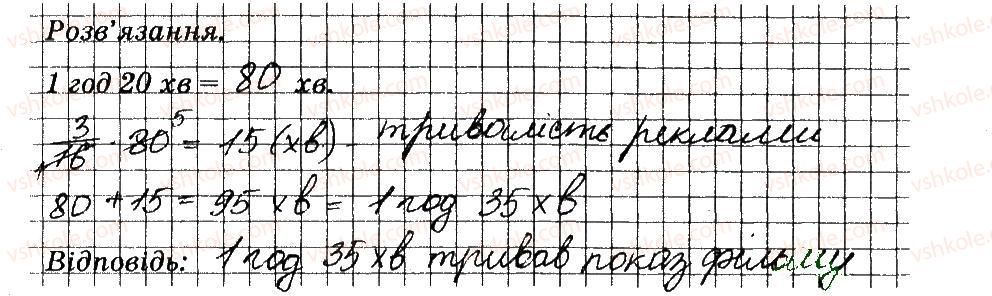 Розв'язання.
1 год 20 хв = 80 хв.
3/16 · 80 5 = 15 (хв) - тривалість реклами
80 + 15 = 95 хв = 1 год 35 хв
Відповідь: 1 год 35 хв тривав показ фільму